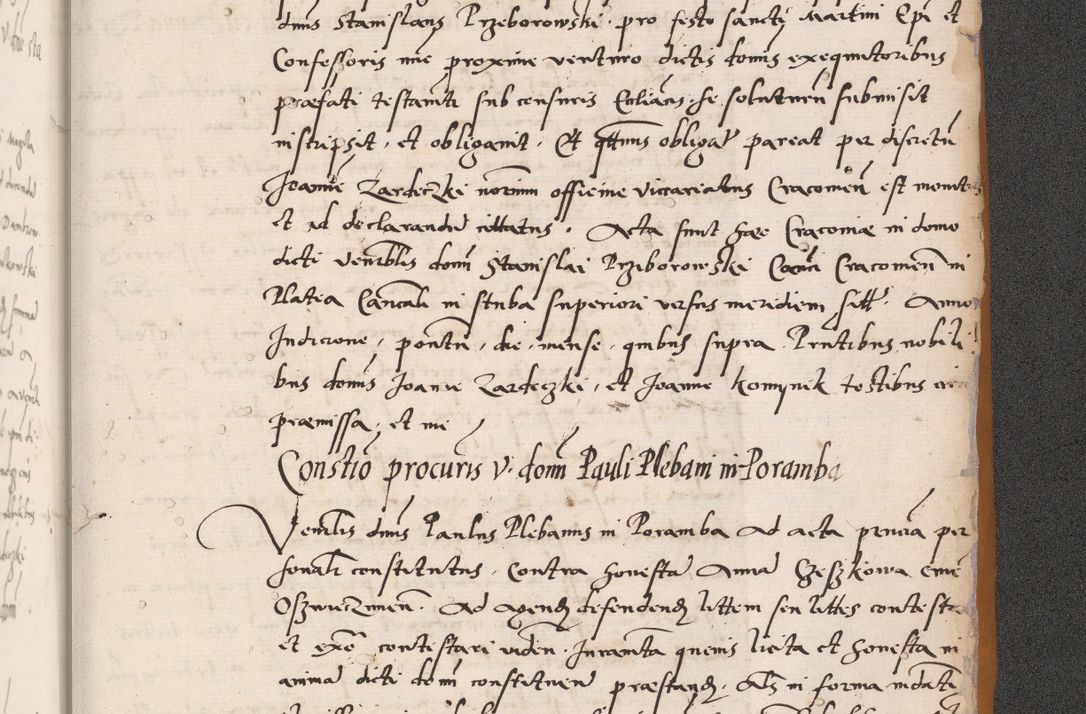 dnus Stanislaus Przeborowski pro festo sancti Martini Epi et
Confessoris nūc proxime venturo dictis domis exequutoribus
præfati testamti sub censuris Ecliacis se soluturū submisit
inscripsit, et obligavit. Et qttenus obligar pareat per discretū
Joanne Zardeczki notarium officine viccariatus Cracoviēn est monitus
et ad declarandū cittatus. Acta sunt hæc Cracoviæ in domo
dicti venrblis domi Stanislai Prziborowski Canci Cracoviēn in
Platea Cancali in stuba superiori versus meridiem sitt. Anno
Indicione, pontu, die, mense, quibus supra. Prntibus nobili
bus domis Joanne Zardeczki, et Joanne Kominek testibus circa
præmissa, et me
Constio procuris v. domi Pauli Plebani in Poramba
Venrlis dnus Paulus Plebanus in Poramba ad acta prnria per
sonalr constitutus, Contra honesta Anna Czeszkowa Cuiē
Oszwieczimen. Ad agendz defendendz littem seu littes contesta
et exnē contestari vidēn. Juramta quevis licita et honesta in
anima dicti domi constituen præstandz. Als in forma mdati